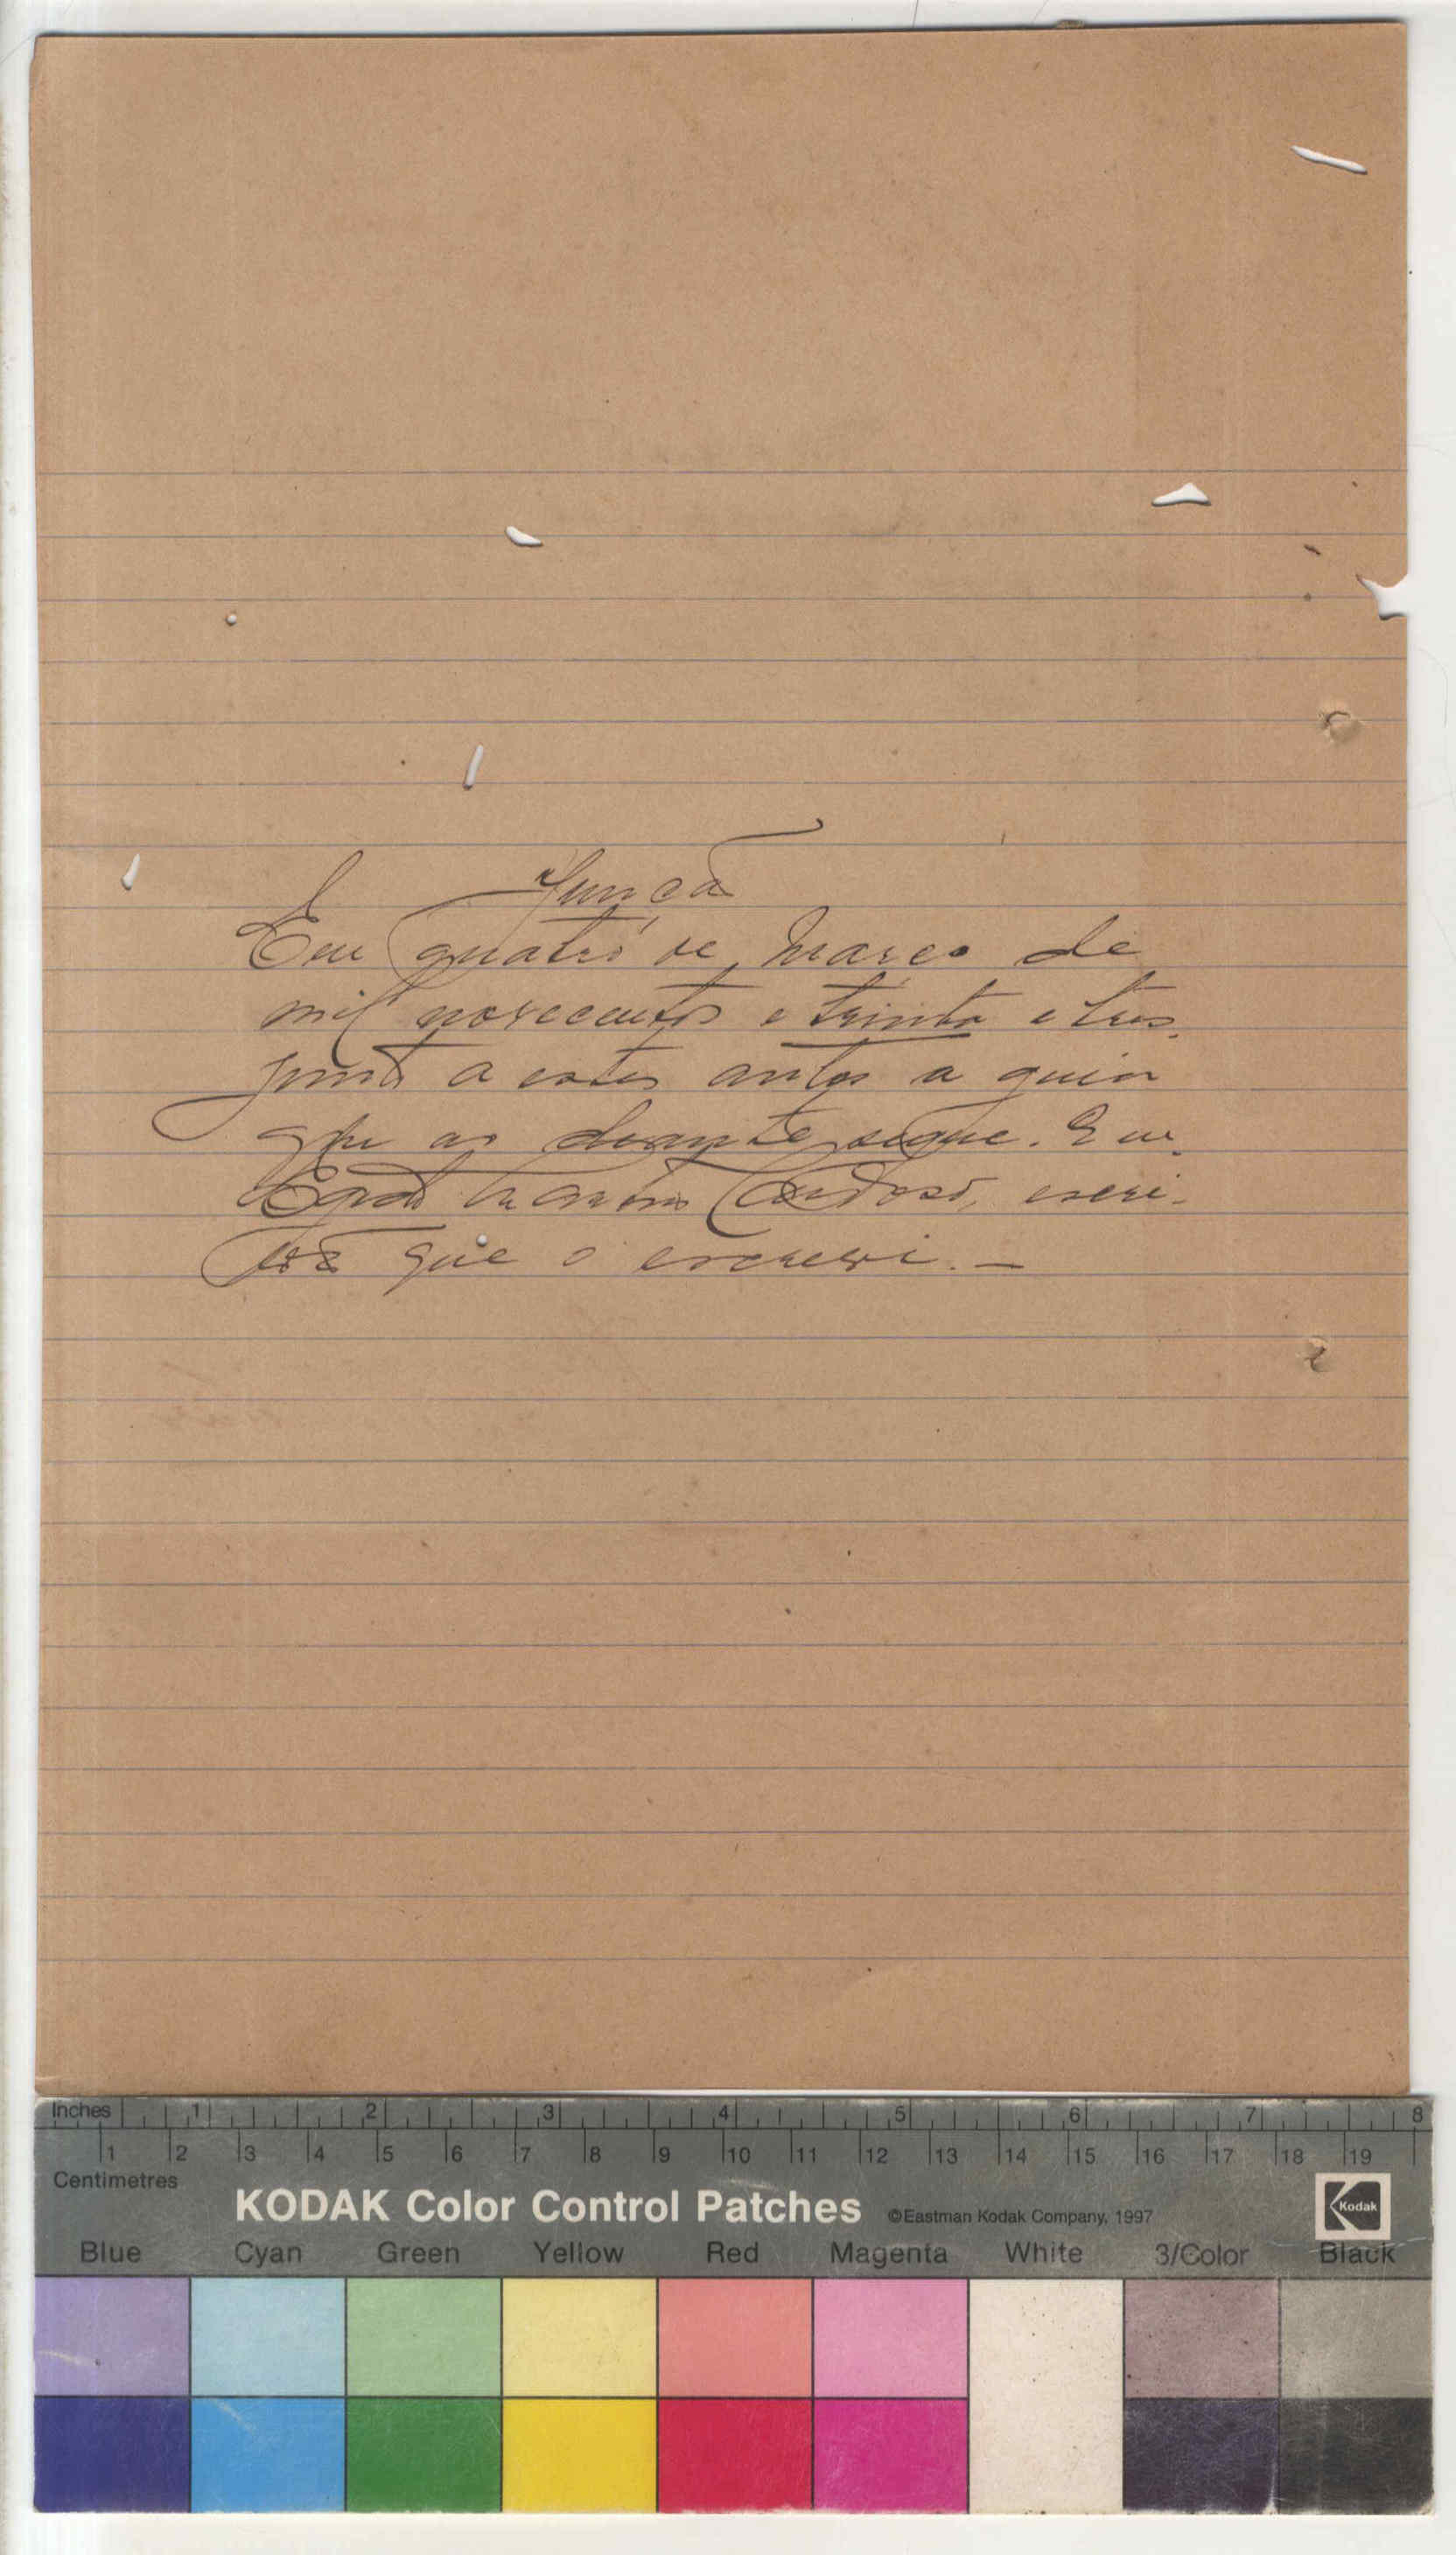 Junção
Em quatro de Março de
mil novecentos e trinta e tres
junto a estes autos a guia
que ao deante segue. Eu
Cardoso, escri-
vão que o escrevi. —
Inches 1 2 3 4 5 6 7 8
1 2 3 4 5 6 7 8 9 10 11 12 13 14 15 16 17 18 19
Centimetres
KODAK Color Control Patches ©Eastman Kodak Company, 1997 Kodak
Blue Cyan Green Yellow Red Magenta White 3/Color Black